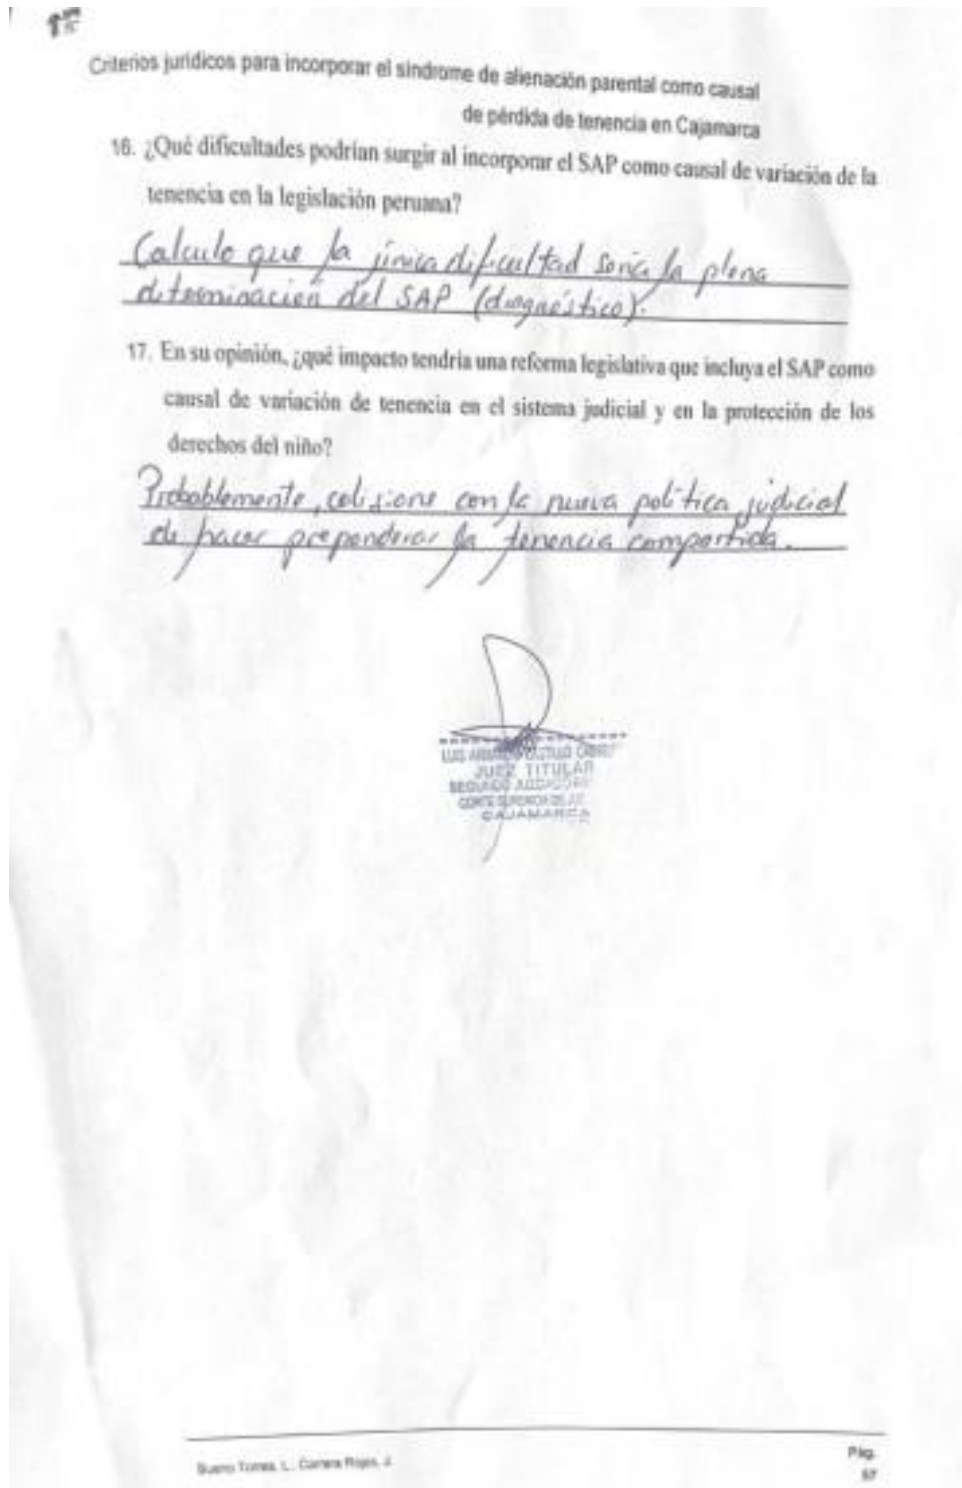 Criterios jurídicos para incorporar el síndrome de alienación parental como causal
de pérdida de tenencia en Cajamarca
16. ¿Qué dificultades podrían surgir al incorporar el SAP como causal de variación de la
tenencia en la legislación peruana?
Calculo que la única dificultad sería la plena
determinación del SAP (diagnóstico).
17. En su opinión, ¿qué impacto tendría una reforma legislativa que incluya el SAP como
causal de variación de tenencia en el sistema judicial y en la protección de los
derechos del niño?
Probablemente, colisione con la nueva política judicial
de hacer preponderar la tenencia compartida.
LUIS CASTILLO
JUEZ TITULAR
SEGUNDO
CORTE SUPERIOR DE
CAJAMARCA
Bueno Torres, L., Carrera Rojas, J.
Pág.
57